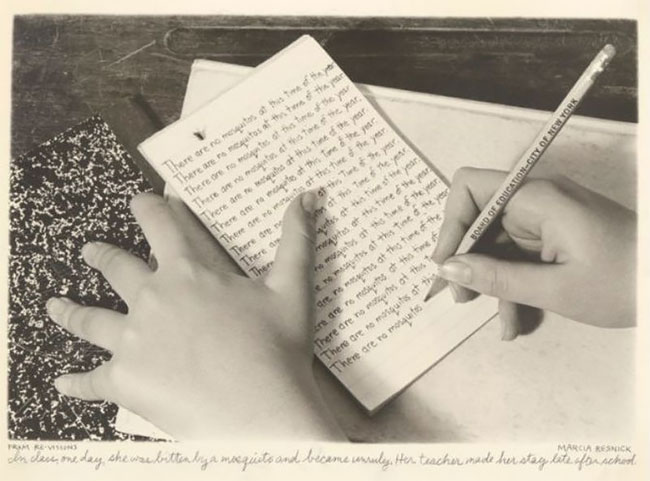 There are no mosquitos at this time of the year.
There are no mosquitos at this time of the year.
There are no mosquitos at this time of the year.
There are no mosquitos at this time of the year.
There are no mosquitos at this time of the year.
There are no mosquitos at this time of the year.
There are no mosquitos at this time of the year.
There are no mosquitos at this time of the year.
There are no mosquitos at this time of the year.
There are at this time of the year.
mosquitos at this time of the year.
mosquitos at this time of the year.
no mosquitos at this time of the
are no mosquitos at this time of the
There are no mosquitos at this time
There are no mosquitos at this
There are no mosquitos
BOARD OF EDUCATION-CITY OF NEW YORK
FROM RE-VISIONS
MARCIA RESNICK
In class, one day, she was bitten by a mosquito and became unruly. Her teacher made her stay late after school.